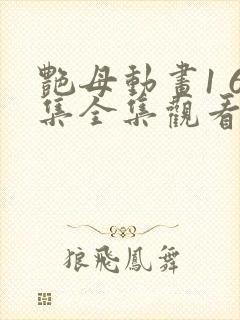 艷母動畫1 6
集全集觀看
狼飛鳳舞